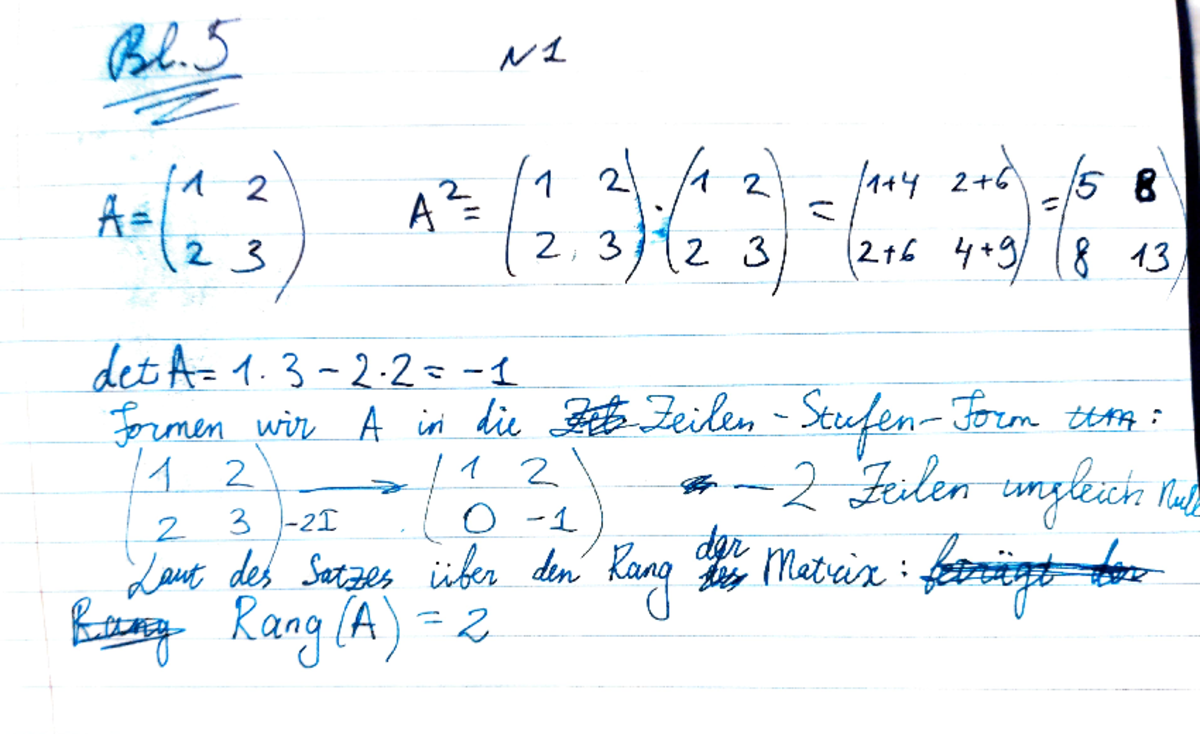 Bl. 5 N1
A = (1 2 / 2 3) A² = (1 2 / 2 3) · (1 2 / 2 3) = (1+4 2+6 / 2+6 4+9) = (5 8 / 8 13)
det A = 1·3 − 2·2 = −1
Formen wir A in die Zeilen-Stufen-Form um:
(1 2 / 2 3) −2I → (1 2 / 0 −1) — 2 Zeilen ungleich Null
Laut des Satzes über den Rang der Matrix:
Rang (A) = 2